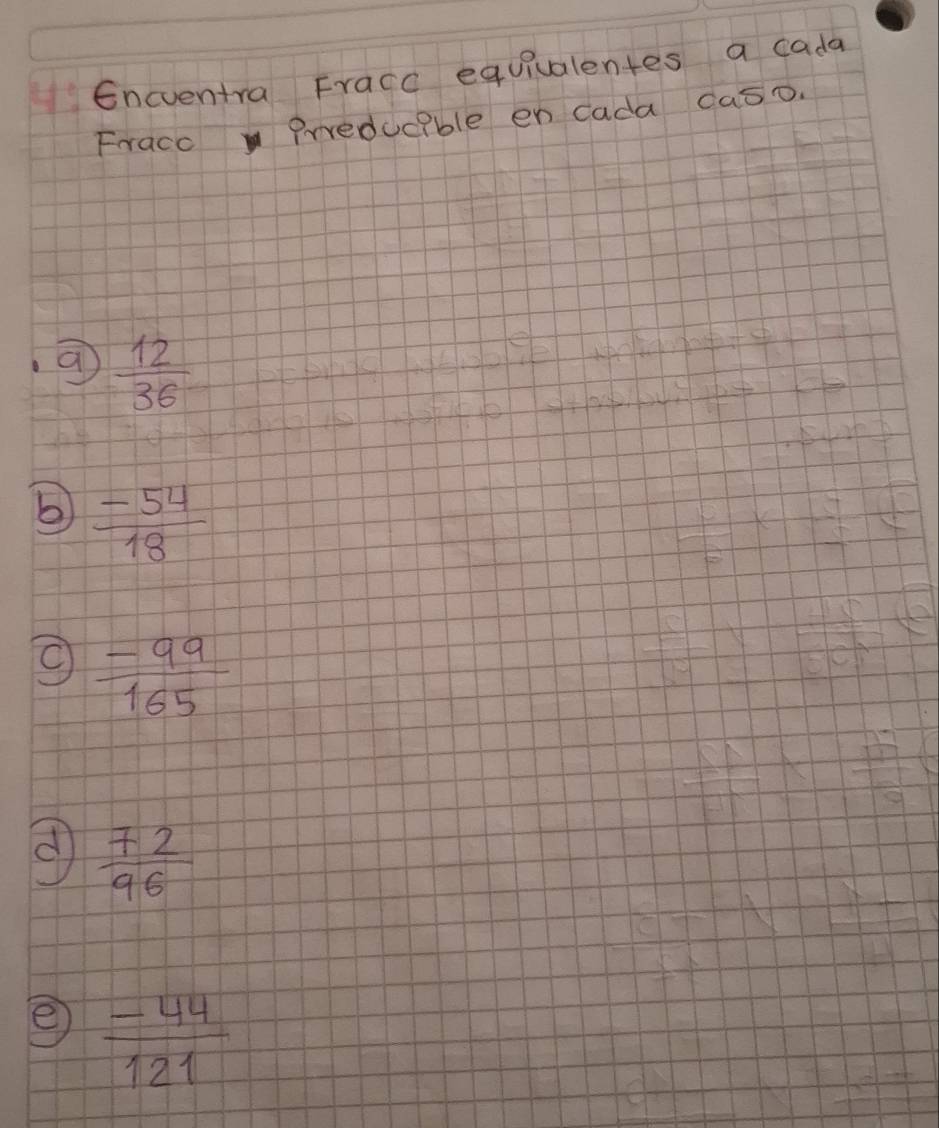 4: Encuentra Fracc equivalentes a cada
Fracc irreducible en cada caso.
a) 12/36
b) -54/18
c) -99/165
d) 72/96
e) -44/121